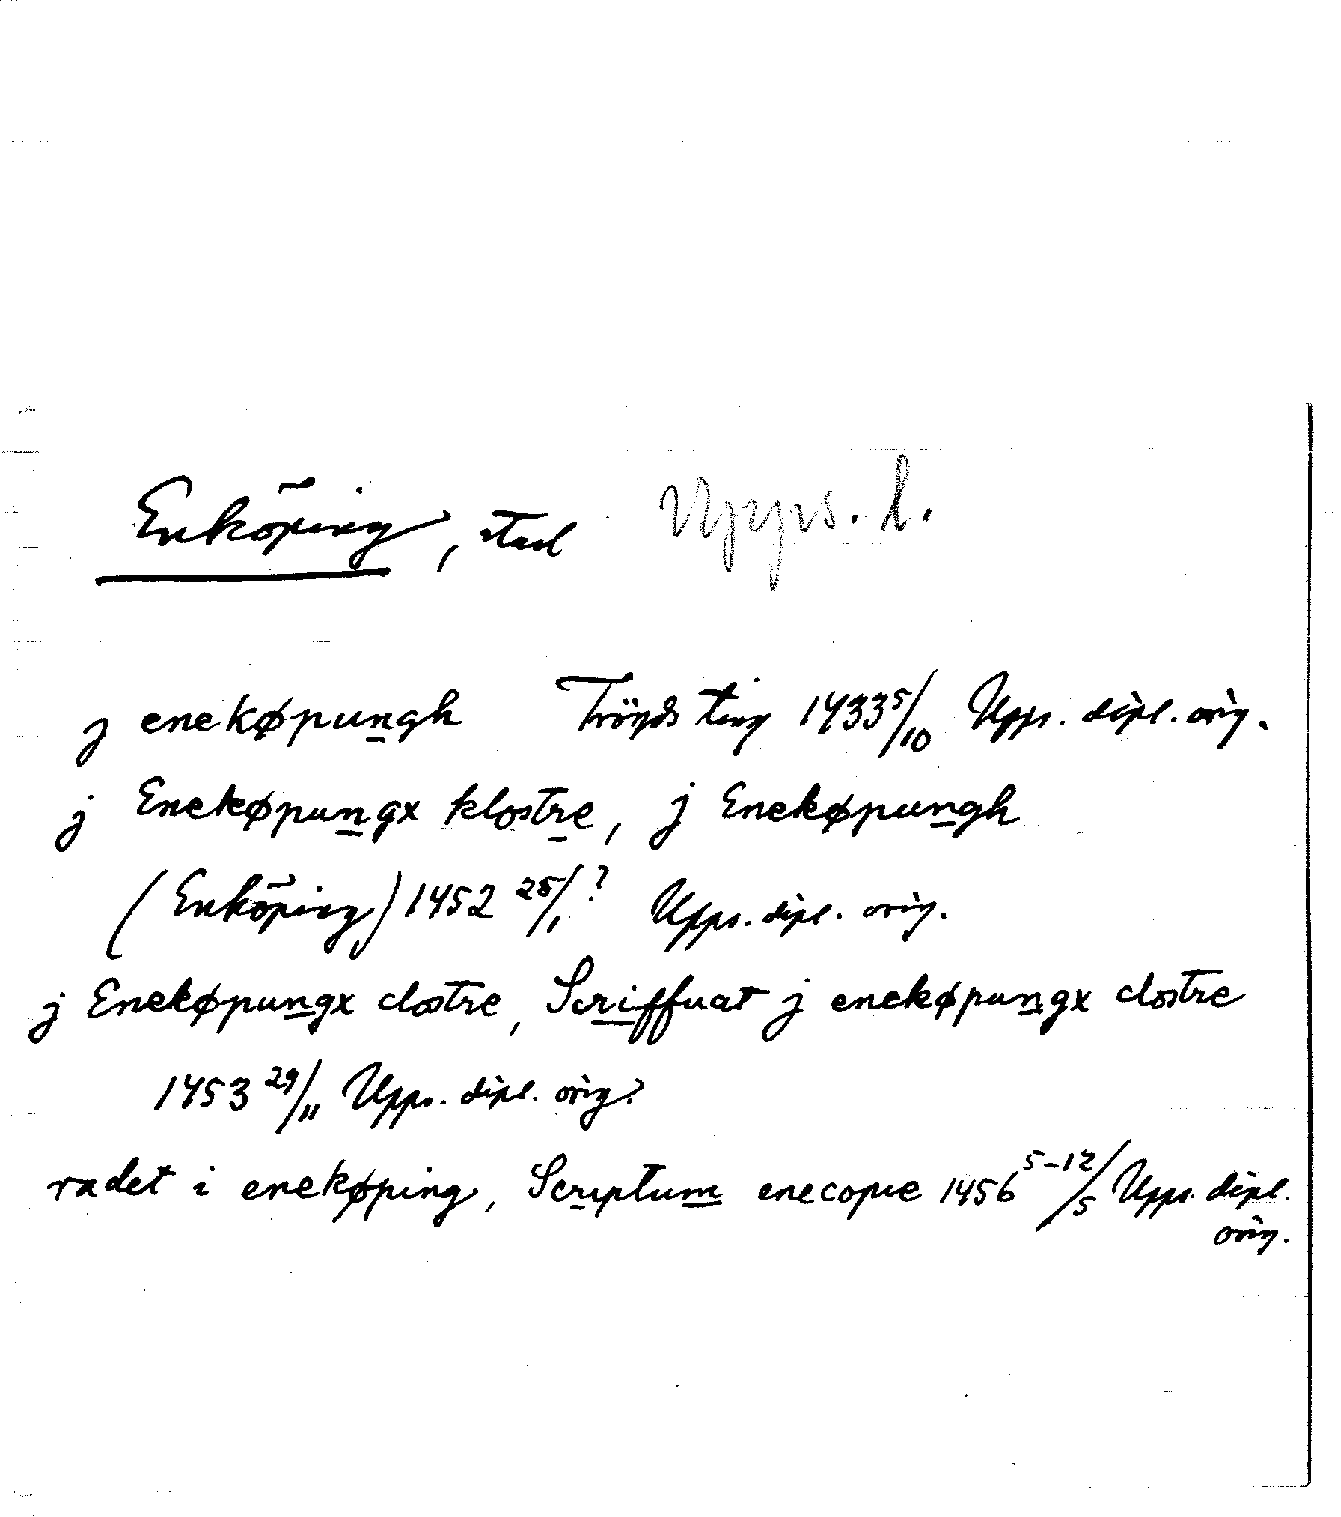 Enköping, stad Upps. l.
j enekøpungh Tröyds ting 1433 5/10 Upps. dipl. orig.
j Enekøpungx klostre, j Enekøpungh
(Enköping) 1452 25/1 ? Upps. dipl. orig.
j Enekøpungx clostre, Scriffuat j enekøpungx clostre
1453 29/11 Upps. dipl. orig.
radet i enekøping, Scriptum enecopie 1456 5-12/5 Upps. dipl.
orig.